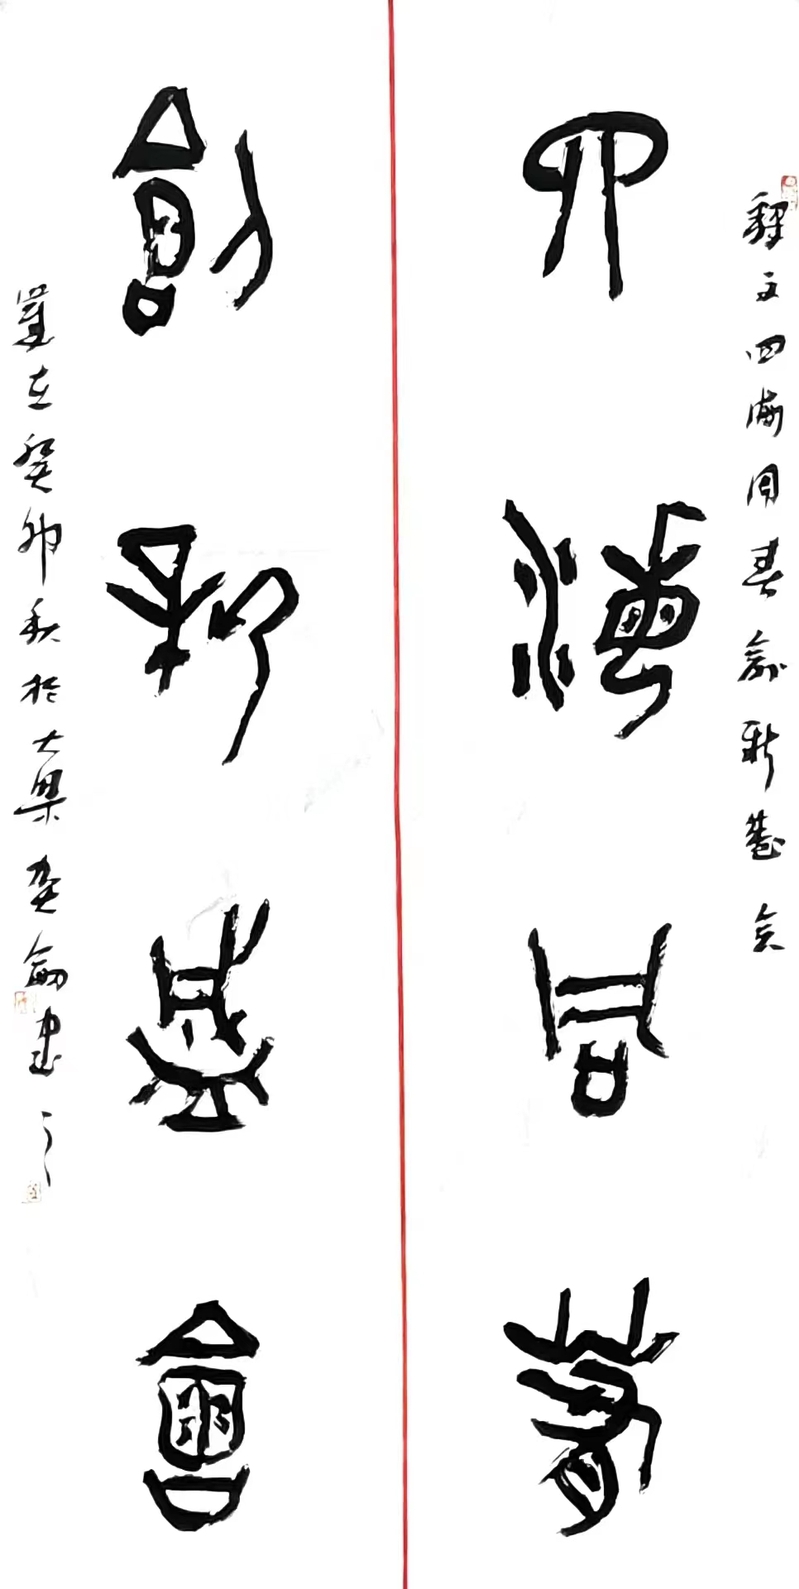 釋文四海同春創新盛会
四海同春
創新盛會
歲在癸卯秋於大梁書